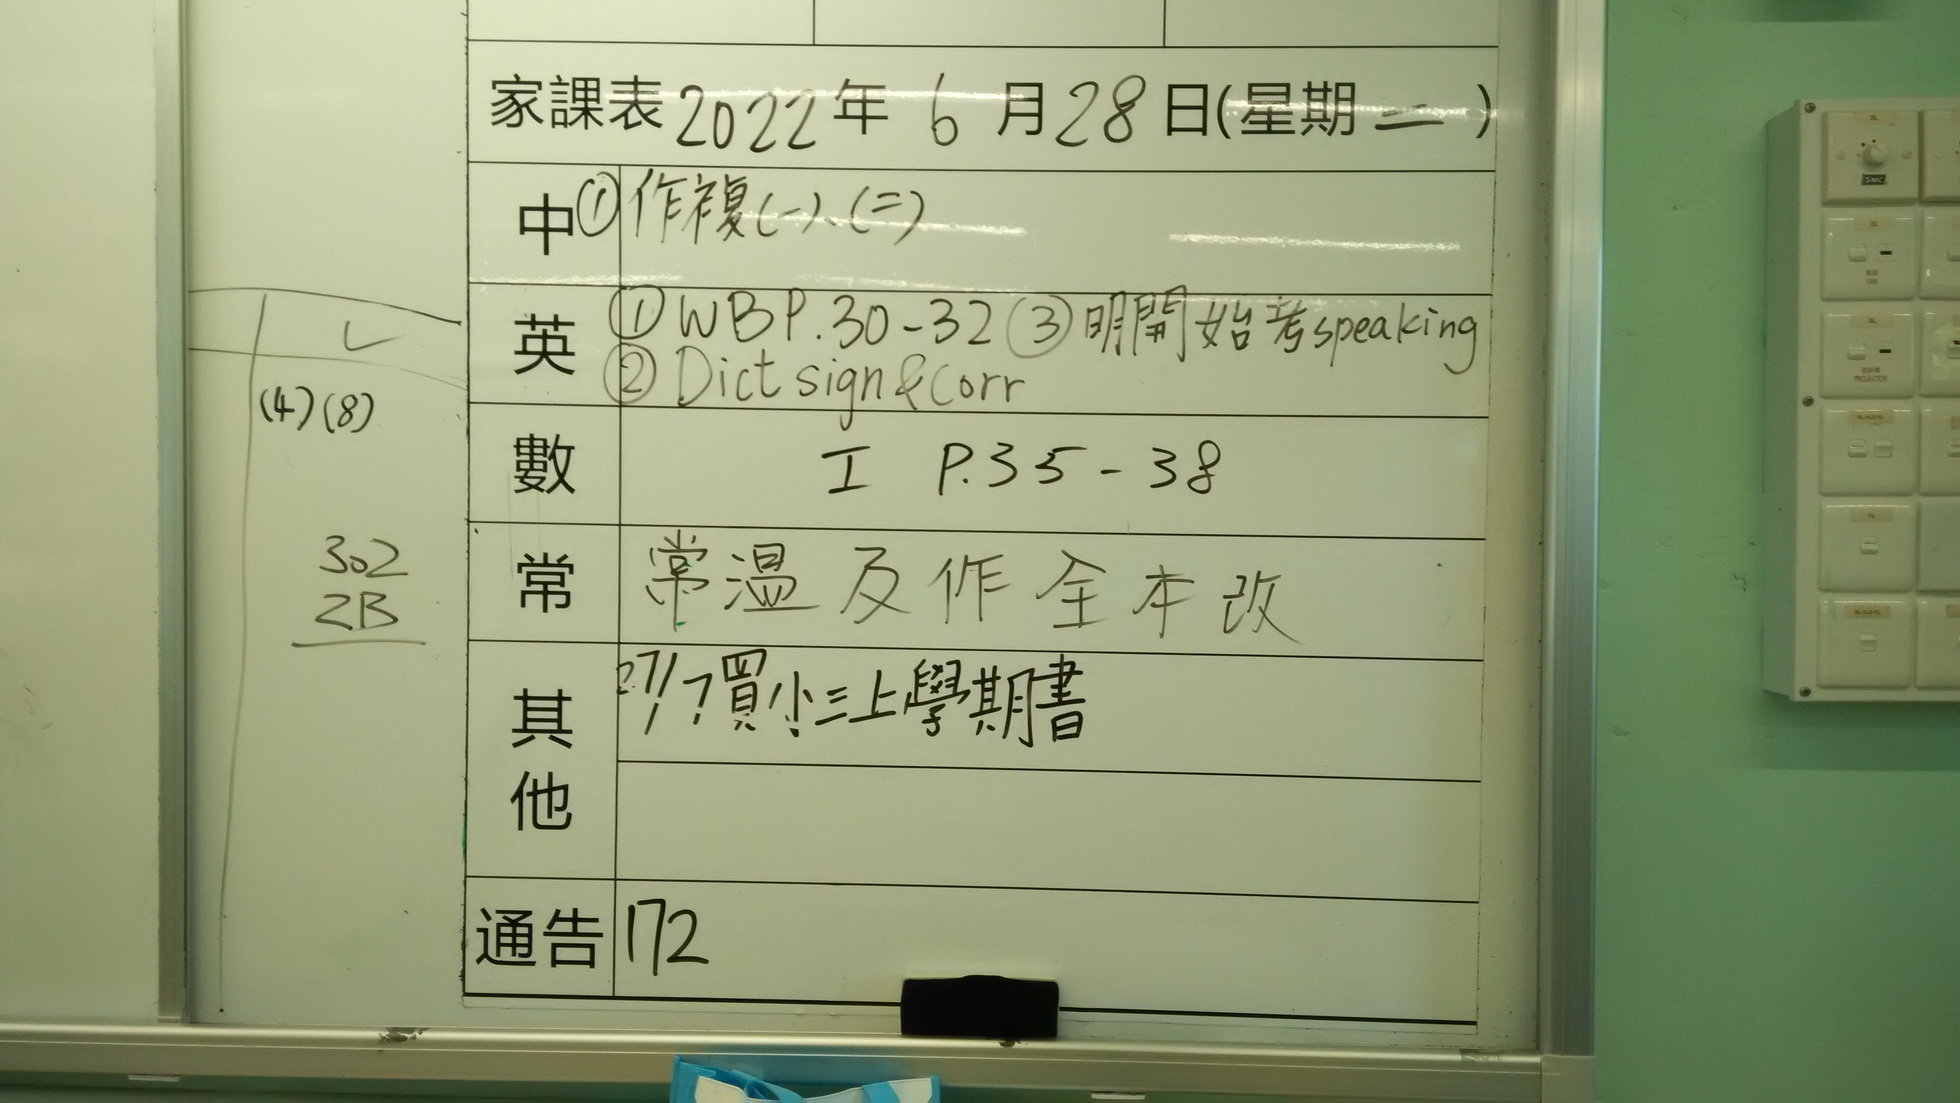 家課表 2022 年 6 月 28 日(星期 二 )
中 ① 作複(一)、(二)
英 ① WB P.30-32 ③ 明開始考speaking
② Dict sign & Corr
數 I P.35-38
常 常溫及作全本改
其他 27/7 買小三上學期書
通告 172
(4)(8)
302
2B